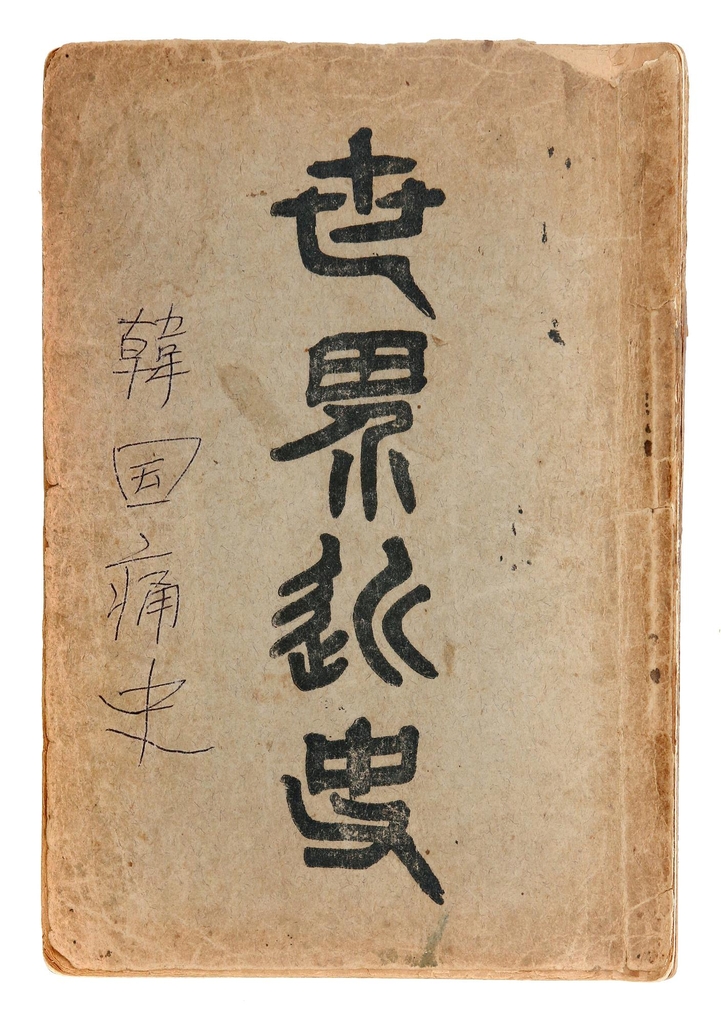 世界近史
韓国痛史